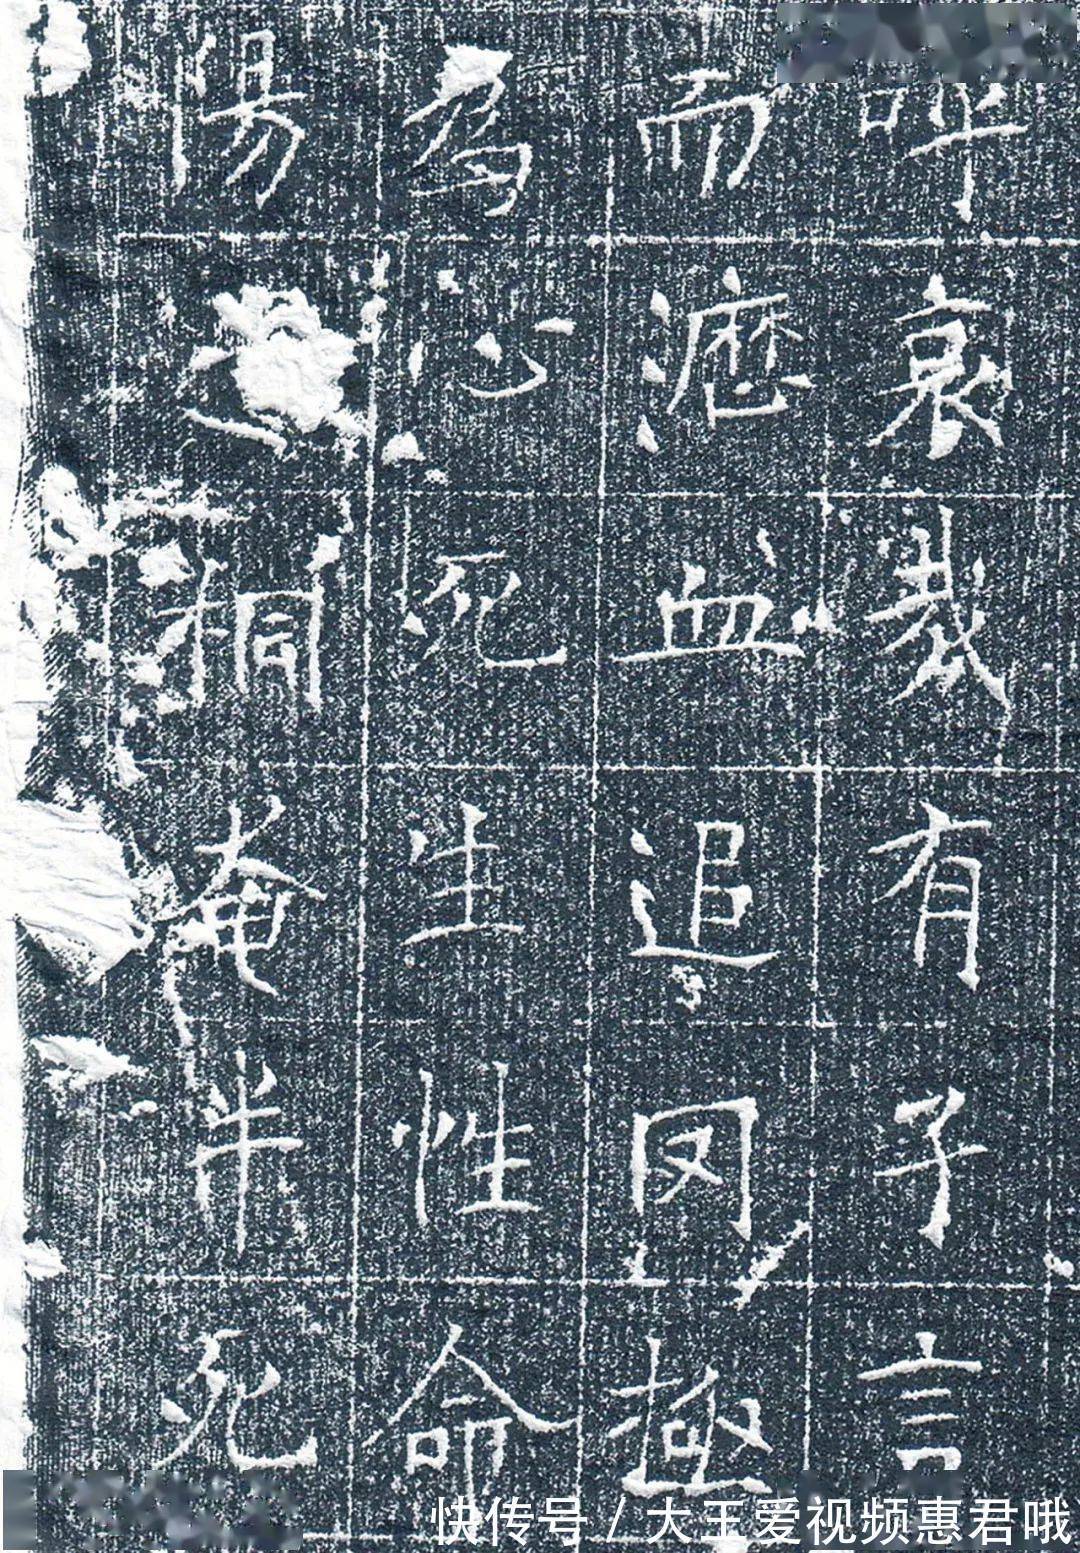 呼哀哉有子言
而瀝血追罔極
為心死生性命
陽□桐奄半死
快传号 / 大王爱视频惠君哦